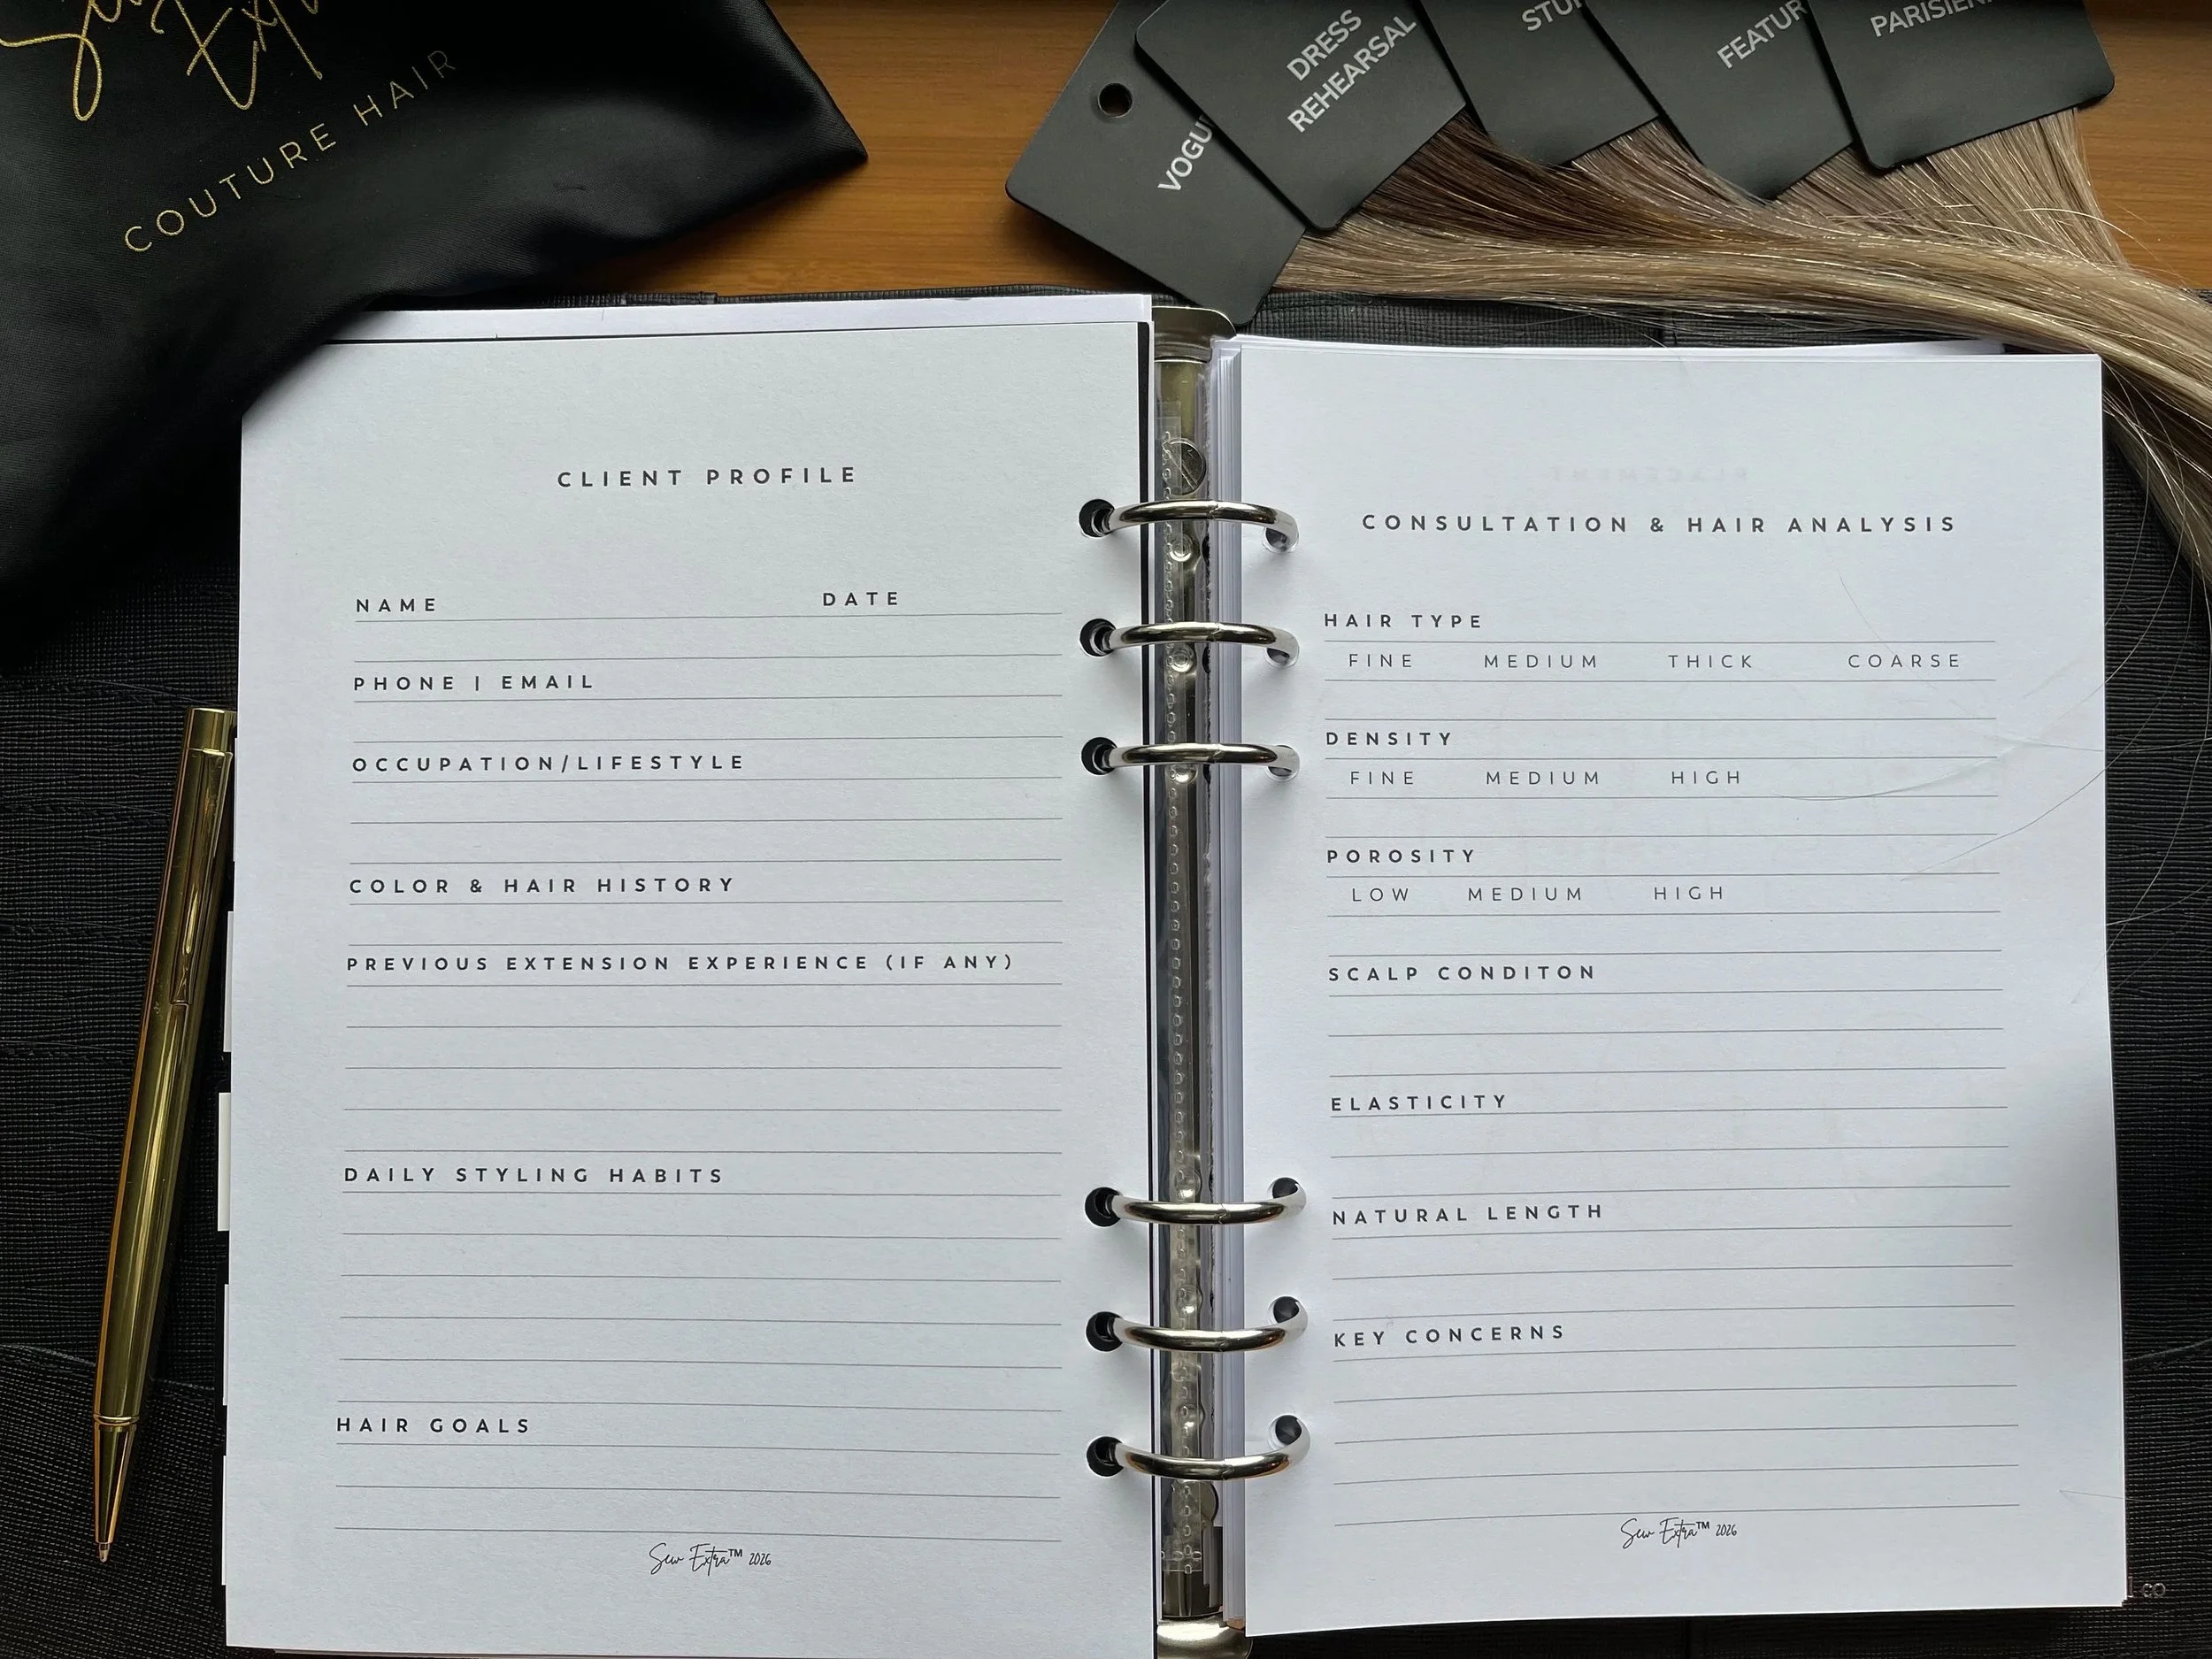 COUTURE HAIR
DRESS
REHEARSAL
CLIENT PROFILE
NAME DATE
PHONE | EMAIL
OCCUPATION/LIFESTYLE
COLOR & HAIR HISTORY
PREVIOUS EXTENSION EXPERIENCE (IF ANY)
DAILY STYLING HABITS
HAIR GOALS
Sew Extra™ 2026
CONSULTATION & HAIR ANALYSIS
HAIR TYPE
FINE MEDIUM THICK COARSE
DENSITY
FINE MEDIUM HIGH
POROSITY
LOW MEDIUM HIGH
SCALP CONDITON
ELASTICITY
NATURAL LENGTH
KEY CONCERNS
Sew Extra™ 2026